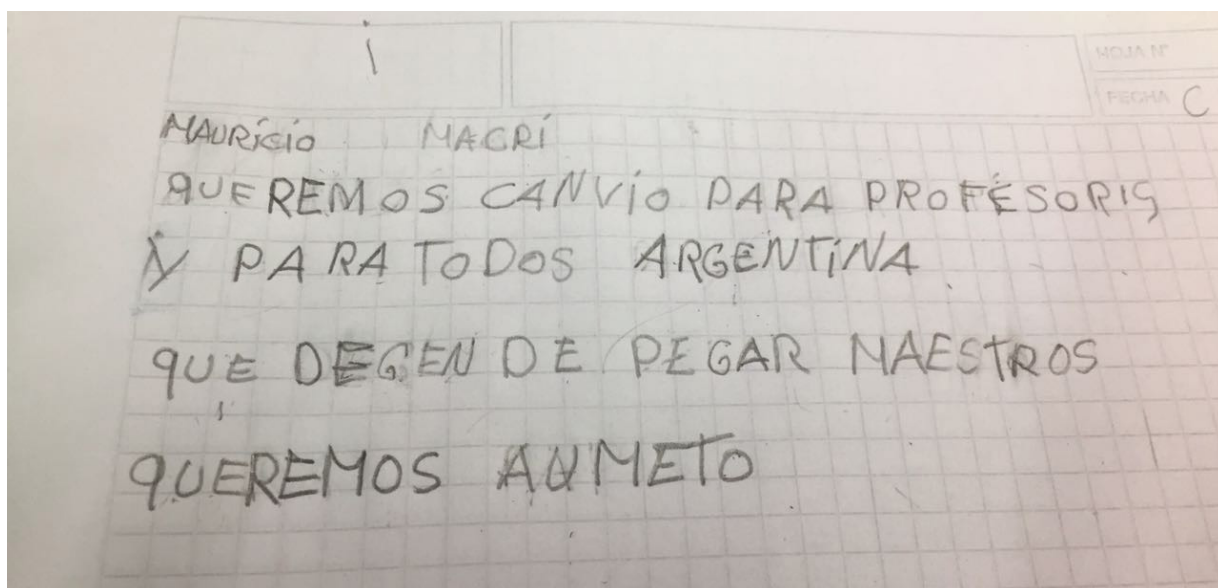 i
HOJA Nº
FECHA C
MAURiCiO MACRi
QUEREMOS CANViO PARA PROFESORIS
Y PARA TODOS ARGENTiNA
QUE DEGEN DE PEGAR MAESTROS
QUEREMOS AUMETO